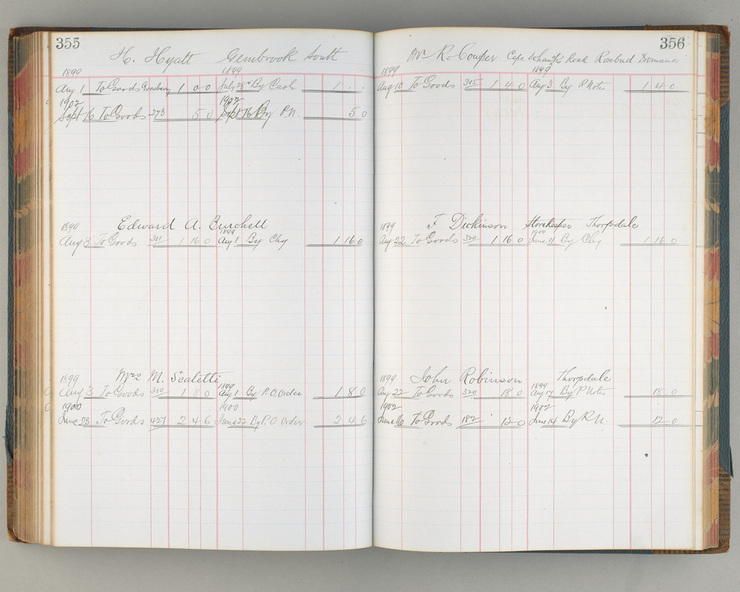 355
H. Hyatt Gembrook South
1899 1899
Aug 1 To Goods 1 0 0 July 28th By Cash 1 . .
1902 1902
Sept 16 To Goods 273 5 0 Sept 16 By P.N. 5 0
Edward A. Burchell
1899 1899
Aug 3 To Goods 1 16 0 Aug 1 By Chq 1 16 0
Mrs M. Scaletti
1899 1899
Aug 3 To Goods 310 1 8 0 Aug 1 By P.O. Order 1 8 0
1900 1900
June 23 To Goods 427 2 4 6 June 22 By P.O Order 2 4 6
356
Mr R. Cowper Cape Schanck Road Rosebud Dromana
1899 1899
Aug 10 To Goods 315 1 4 0 Aug 3 By P Notes 1 4 0
F. Dickinson Storekeeper Thorpdale
1899 1900
Aug 22 To Goods 1 16 0 June 9 By Chq 1 16 0
John Robinson Thorpdale
1899 1899
Aug 22 To Goods 324 18 0 Aug 17 By P Notes 18 0
1902 1902
June 16 To Goods 182 12 0 June 14 By P.N. 12 0